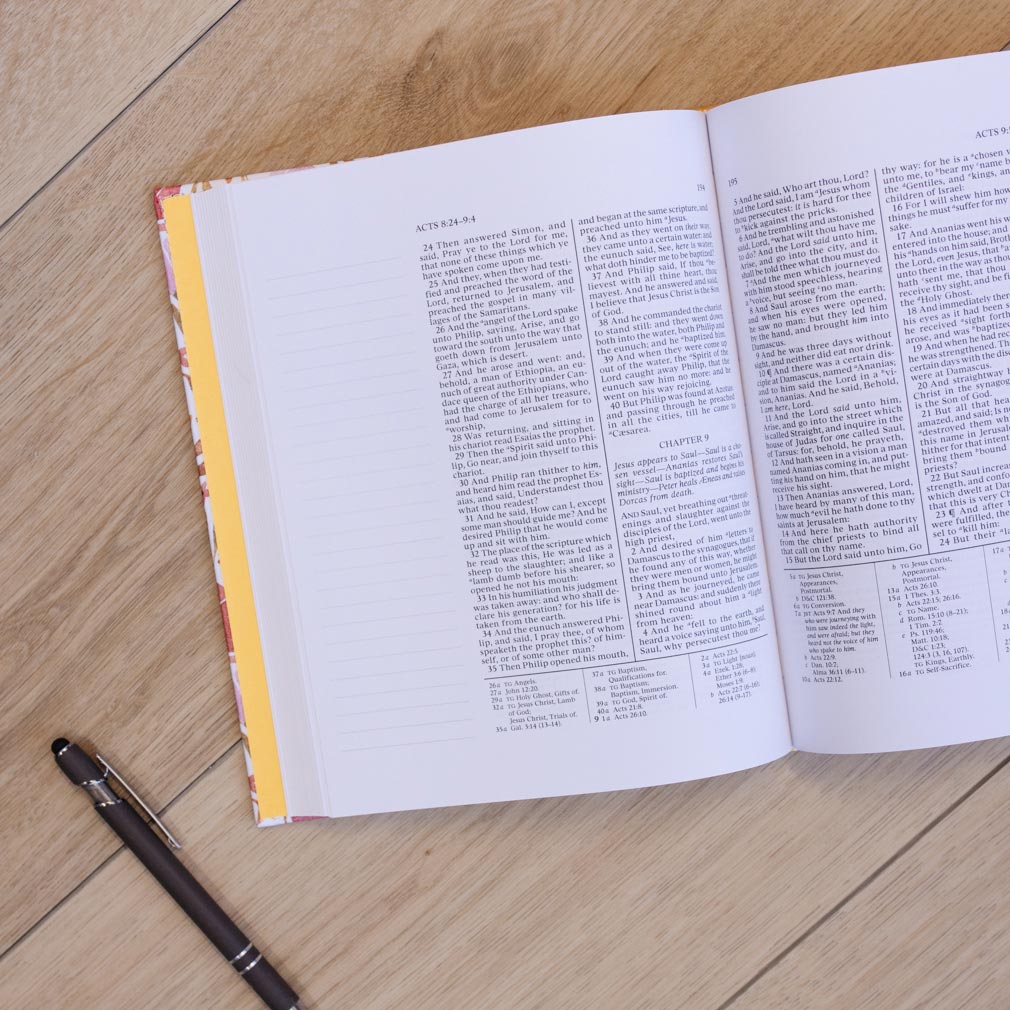 ACTS 8:24–9:4
194
24 Then answered Simon, and
said, Pray ye to the Lord for me,
that none of these things which ye
have spoken come upon me.
25 And they, when they had testi-
fied and preached the word of the
Lord, returned to Jerusalem, and
preached the gospel in many vil-
lages of the Samaritans.
26 And the ᵃangel of the Lord spake
unto Philip, saying, Arise, and go
toward the south unto the way that
goeth down from Jerusalem unto
Gaza, which is desert.
27 And he arose and went: and,
behold, a man of Ethiopia, an eu-
nuch of great authority under Can-
dace queen of the Ethiopians, who
had the charge of all her treasure,
and had come to Jerusalem for to
ᵃworship,
28 Was returning, and sitting in
his chariot read Esaias the prophet.
29 Then the ᵃSpirit said unto Phi-
lip, Go near, and join thyself to this
chariot.
30 And Philip ran thither to him,
and heard him read the prophet Es-
aias, and said, Understandest thou
what thou readest?
31 And he said, How can I, except
some man should guide me? And he
desired Philip that he would come
up and sit with him.
32 The place of the scripture which
he read was this, He was led as a
sheep to the slaughter; and like a
ᵃlamb dumb before his shearer, so
opened he not his mouth:
33 In his humiliation his judgment
was taken away: and who shall de-
clare his generation? for his life is
taken from the earth.
34 And the eunuch answered Phi-
lip, and said, I pray thee, of whom
speaketh the prophet this? of him-
self, or of some other man?
35 Then Philip opened his mouth,
and began at the same scripture, and
preached unto him ᵃJesus.
36 And as they went on their way,
they came unto a certain water: and
the eunuch said, See, here is water;
what doth hinder me to be baptized?
37 And Philip said, If thou ᵃbe-
lievest with all thine heart, thou
mayest. And he answered and said,
I believe that Jesus Christ is the Son
of God.
38 And he commanded the chariot
to stand still: and they went down
both into the water, both Philip and
the eunuch; and he ᵃbaptized him.
39 And when they were come up
out of the water, the ᵃSpirit of the
Lord caught away Philip, that the
eunuch saw him no more: and he
went on his way rejoicing.
40 But Philip was found at Azotus:
and passing through he preached
in all the cities, till he came to
ᵃCæsarea.
CHAPTER 9
Jesus appears to Saul—Saul is a cho-
sen vessel—Ananias restores Saul's
sight—Saul is baptized and begins his
ministry—Peter heals Æneas and raises
Dorcas from death.
AND Saul, yet breathing out ᵃthreat-
enings and slaughter against the
disciples of the Lord, went unto the
high priest,
2 And desired of him ᵃletters to
Damascus to the synagogues, that if
he found any of this way, whether
they were men or women, he might
bring them bound unto Jerusalem.
3 And as he journeyed, he came
near Damascus: and suddenly there
shined round about him a ᵃlight
from heaven:
4 And he ᵃfell to the earth, and
heard a voice saying unto him, ᵇSaul,
Saul, why persecutest thou me?
26a TG Angels.
27a John 12:20.
29a TG Holy Ghost, Gifts of.
32a TG Jesus Christ, Lamb
of God;
Jesus Christ, Trials of.
35a Gal. 3:14 (13–14).
37a TG Baptism,
Qualifications for.
38a TG Baptism;
Baptism, Immersion.
39a TG God, Spirit of.
40a Acts 21:8.
9 1a Acts 26:10.
2a Acts 22:5.
3a TG Light [noun].
4a Ezek. 1:28;
Ether 3:6 (6–8);
Moses 1:9.
b Acts 22:7 (6–16);
26:14 (9–17).
195
ACTS 9:
5 And he said, Who art thou, Lord?
And the Lord said, I am ᵃJesus whom
thou persecutest: it is hard for thee
to ᵇkick against the pricks.
6 And he trembling and astonished
said, Lord, ᵃwhat wilt thou have me
to do? And the Lord said unto him,
Arise, and go into the city, and it
shall be told thee what thou must do.
7 ᵃAnd the men which journeyed
with him stood speechless, hearing
a ᵇvoice, but seeing ᶜno man.
8 And Saul arose from the earth;
and when his eyes were opened,
he saw no man: but they led him
by the hand, and brought him into
Damascus.
9 And he was three days without
sight, and neither did eat nor drink.
10 ¶ And there was a certain dis-
ciple at Damascus, named ᵃAnanias;
and to him said the Lord in a ᵇvi-
sion, Ananias. And he said, Behold,
I am here, Lord.
11 And the Lord said unto him,
Arise, and go into the street which
is called Straight, and inquire in the
house of Judas for one called Saul,
of Tarsus: for, behold, he prayeth,
12 And hath seen in a vision a man
named Ananias coming in, and put-
ting his hand on him, that he might
receive his sight.
13 Then Ananias answered, Lord,
I have heard by many of this man,
how much ᵃevil he hath done to thy
saints at Jerusalem:
14 And here he hath authority
from the chief priests to bind all
that call on thy name.
15 But the Lord said unto him, Go
thy way: for he is a ᵃchosen
unto me, to ᵇbear my ᶜname
the ᵈGentiles, and ᵉkings, an
children of Israel:
16 For I will shew him how
things he must ᵃsuffer for my
sake.
17 And Ananias went his w
entered into the house; and
his ᵃhands on him said, Broth
the Lord, even Jesus, that
unto thee in the way as tho
hath ᶜsent me, that thou
receive thy sight, and be fi
the ᵈHoly Ghost.
18 And immediately there
his eyes as it had been s
he received ᵃsight forth
arose, and was ᵇbaptized
19 And when he had rec
he was strengthened. Th
certain days with the disc
were at Damascus.
20 And straightway h
Christ in the synagog
is the Son of God.
21 But all that hea
amazed, and said; Is n
ᵃdestroyed them wh
this name in Jerusal
hither for that intent
bring them ᵇbound
priests?
22 But Saul increas
strength, and confo
which dwelt at Dam
that this is very Ch
23 ¶ And after
were fulfilled, the
sel to ᵃkill him:
24 But their ᵃla
5a TG Jesus Christ,
Appearances,
Postmortal.
b D&C 121:38.
6a TG Conversion.
7a JST Acts 9:7 And they
who were journeying with
him saw indeed the light,
and were afraid; but they
heard not the voice of him
who spake to him.
b Acts 22:9.
c Dan. 10:7;
Alma 36:11 (6–11).
10a Acts 22:12.
b TG Jesus Christ,
Appearances,
Postmortal.
13a Acts 26:10.
15a 1 Thes. 3:3.
b Acts 22:15; 26:16.
c TG Name.
d Rom. 15:10 (8–21);
1 Tim. 2:7.
e Ps. 119:46;
Matt. 10:18;
D&C 1:23;
124:3 (3, 16, 107).
TG Kings, Earthly.
16a TG Self-Sacrifice.
17a